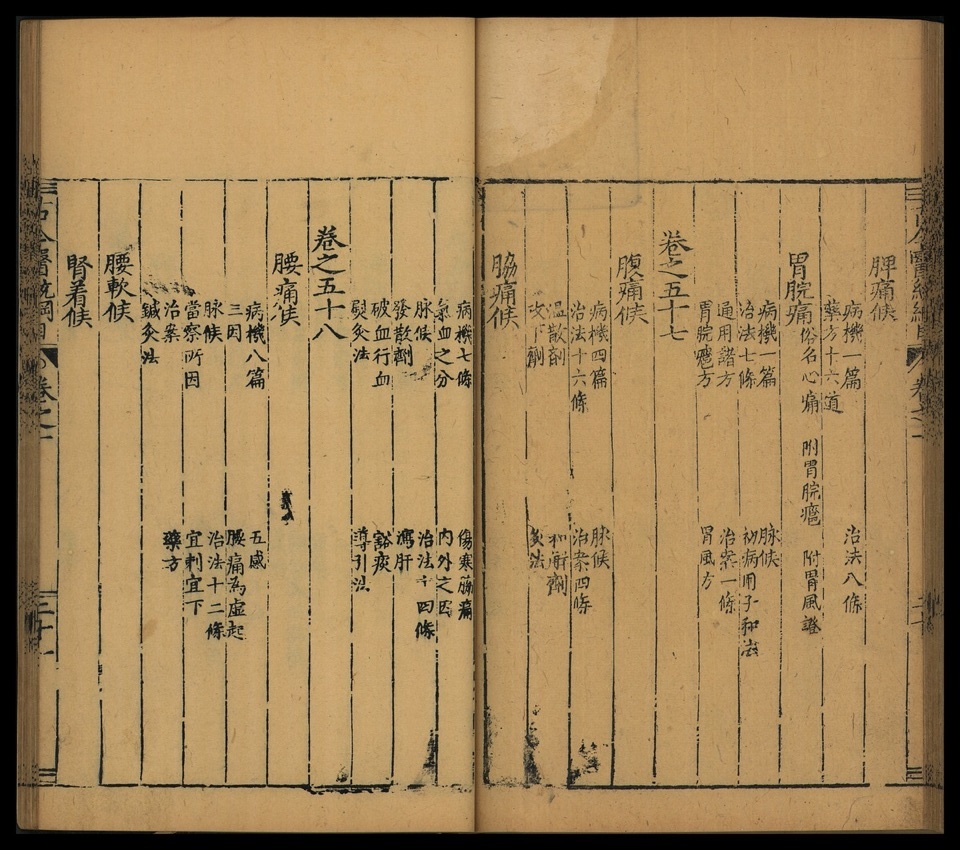 脾痛候
病機一篇 治法八條
藥方十六道
胃脘痛 俗名心痛 附胃脘癰 附胃風證
病機一篇 脉候
治法七條 初病用子和法
通用諸方 治案一條
胃脘癰方 胃風方
卷之五十七
腹痛候
病機四篇 脉候
治法十六條 治案四條
溫散劑 和解劑
攻下劑 灸法
脇痛候
病機七條 傷寒脇痛
氣血之分 內外之因
脉候 治法十四條
發散劑 瀉肝
破血行血 豁痰
熨灸法 導引法
卷之五十八
腰痛候
病機八篇 五感
三因 腰痛為虛起
脉候 治法十二條
當察所因 宜刺宜下
治案 藥方
鍼灸法
腰軟候
腎着候
古今醫統綱目 卷之一